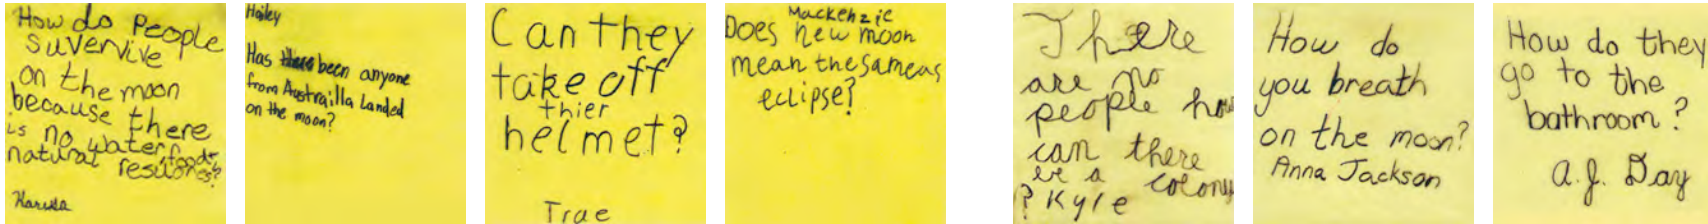 How do People
suvervive
on the moon
because there
is no water, food,
natural resources?
Karissa
Hailey
Has there been anyone
from Austrailla Landed
on the moon?
Can they
take off
thier
helmet?
Trae
Mackenzie
Does new moon
mean the same as
eclipse?
There
are no
people how
can there
be a colony
? Kyle
How do
you breath
on the moon?
Anna Jackson
How do they
go to the
bathroom?
A.J. Day